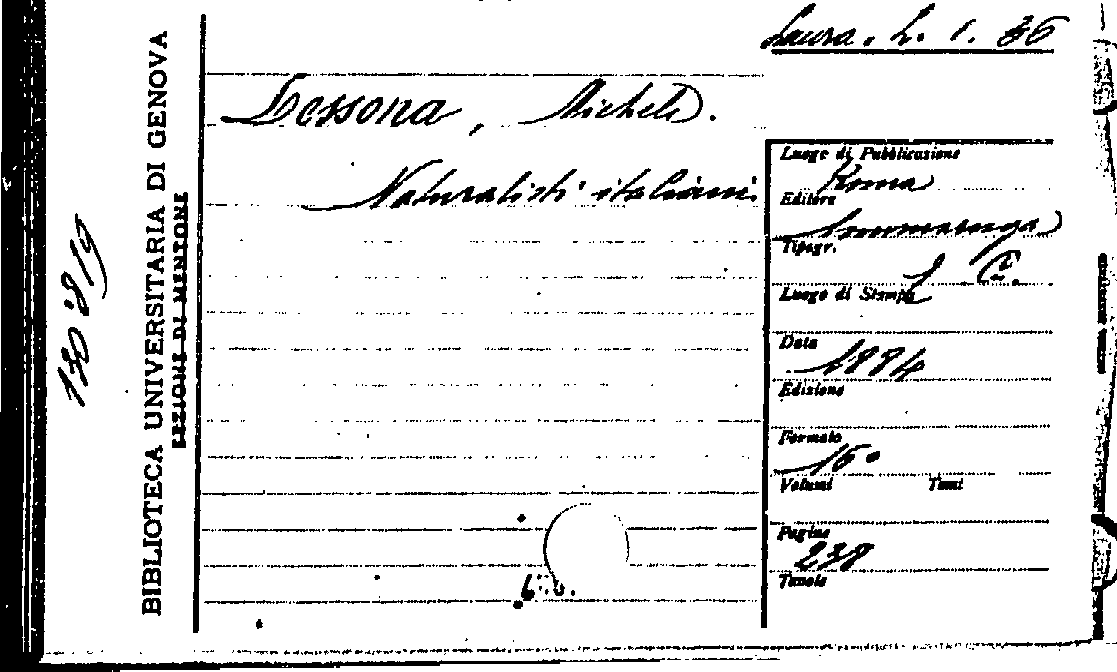 Laura. L. 1. 36
Lessona, Michele.
Naturalisti italiani.
Luogo di Pubblicazione
Roma
Editore
Sommaruga
Tipogr.
e C.
Luogo di Stampa
Data
1884
Edizione
Formato
16°
Volumi Tomi
Pagine
238
Tavole
BIBLIOTECA UNIVERSITARIA DI GENOVA
SEZIONE DI MENTONE
130'819